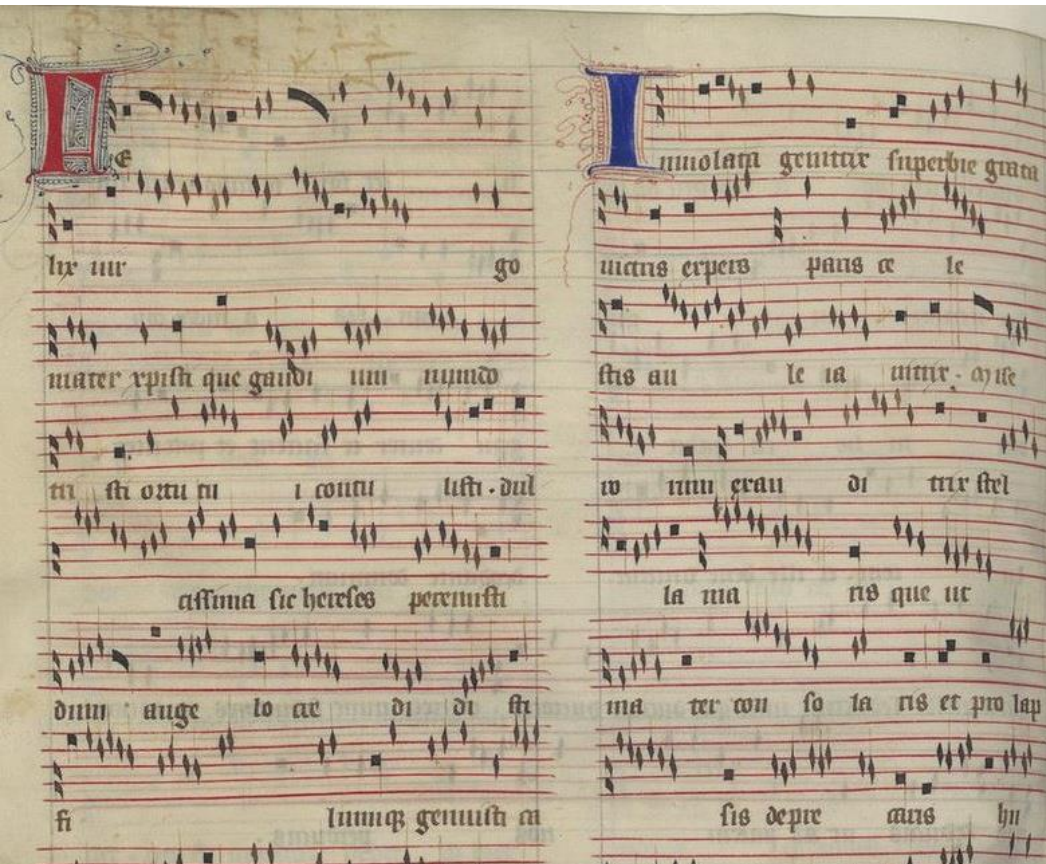 FE
lix uir go
mater xpisti que gaudi um mundo
tri sti ortu tu i contu listi . dul
cissima sic hereses peremisti
dum ange lo cre di di sti
fi liumq genuisti ca
Inuiolata genitrix superbie grata
uictris expers paris ce le
stis au le ia nitrix . mise
ro rum exau di trix stel
la ma ris que ut
ma ter con so la ris et pro lap
sis depre caris hu